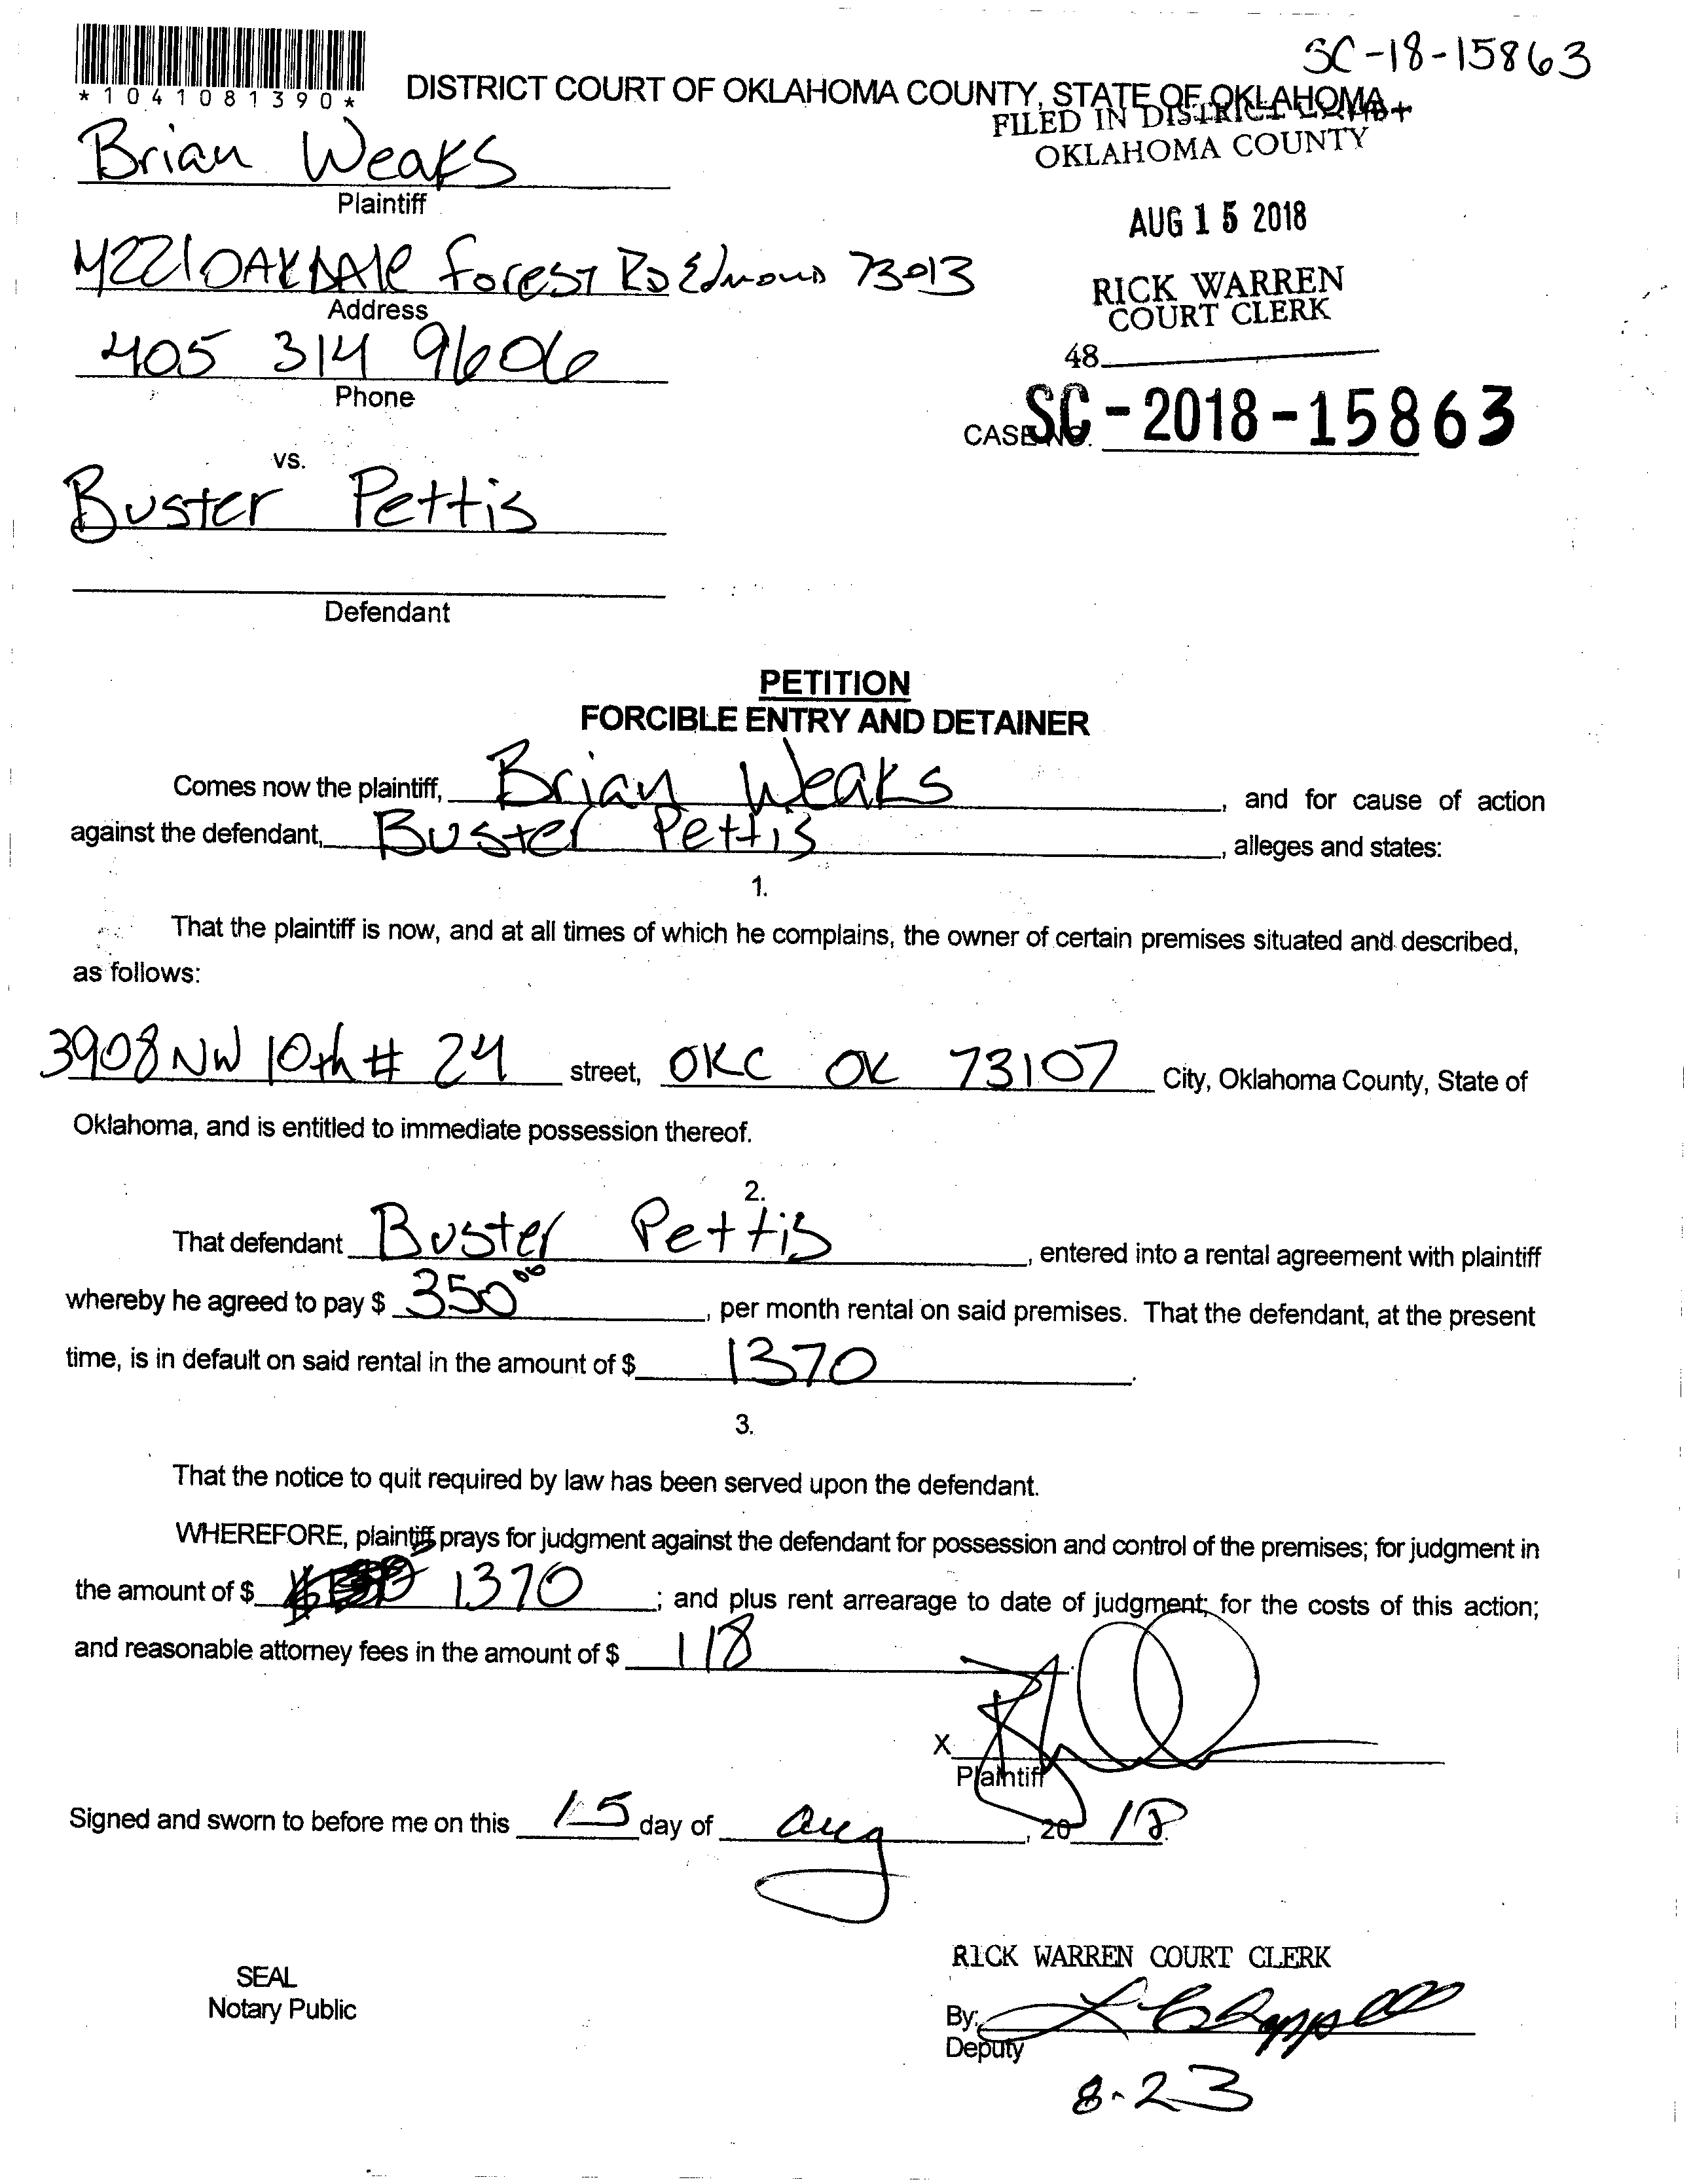 SC-18-15863
*1041081390*
DISTRICT COURT OF OKLAHOMA COUNTY, STATE OF OKLAHOMA
FILED IN DISTRICT COURT
OKLAHOMA COUNTY
Brian Weaks
Plaintiff
AUG 15 2018
4221 OAKDALE Forest Rd Edmond 73013
Address
RICK WARREN
COURT CLERK
405 314 9606
Phone
48
CASE NO. SC-2018-15863
vs.
Buster Pettis
Defendant
PETITION
FORCIBLE ENTRY AND DETAINER
Comes now the plaintiff, Brian Weaks, and for cause of action
against the defendant, Buster Pettis, alleges and states:
1.
That the plaintiff is now, and at all times of which he complains, the owner of certain premises situated and described,
as follows:
3908 NW 10th # 24 street, OKC OK 73107 City, Oklahoma County, State of
Oklahoma, and is entitled to immediate possession thereof.
2.
That defendant Buster Pettis, entered into a rental agreement with plaintiff
whereby he agreed to pay $ 350 00, per month rental on said premises. That the defendant, at the present
time, is in default on said rental in the amount of $ 1370.
3.
That the notice to quit required by law has been served upon the defendant.
WHEREFORE, plaintiff prays for judgment against the defendant for possession and control of the premises; for judgment in
the amount of $ 1370; and plus rent arrearage to date of judgment; for the costs of this action;
and reasonable attorney fees in the amount of $ 118.
X
Plaintiff
Signed and sworn to before me on this 15 day of Aug, 20 18.
RICK WARREN COURT CLERK
SEAL
Notary Public
By:
Deputy
8-23